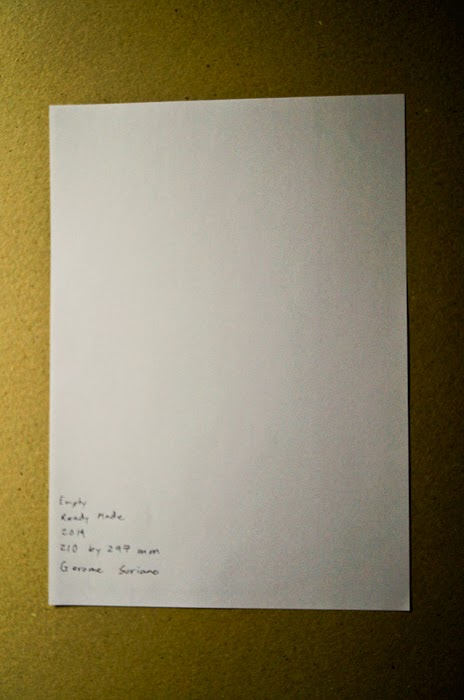 Empty
Ready Made
2014
210 by 297 mm
Gerome Soriano